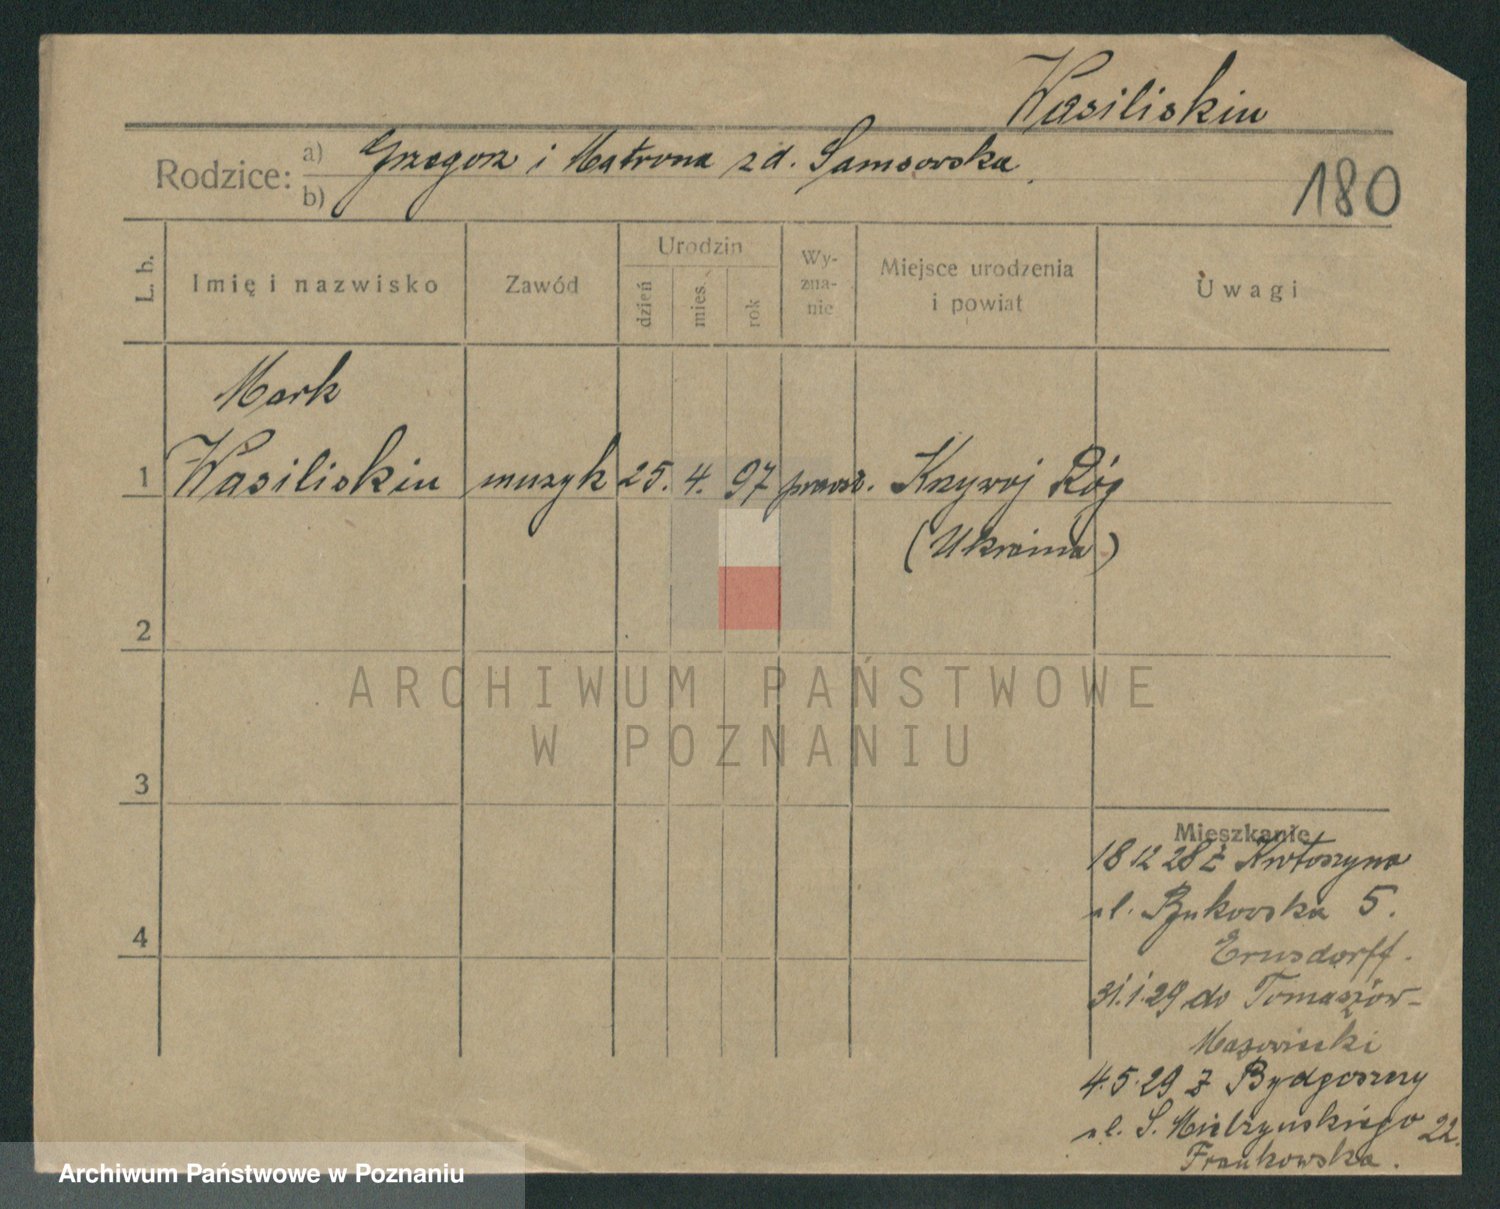 Wasiliskin
Rodzice: a) Grzegorz i Matrona zd. Samsowska.
b)
180
L. b.
Imię i nazwisko
Zawód
Urodzin
dzień
mies.
rok
Wy-
zna-
nie
Miejsce urodzenia
i powiat
Uwagi
Mark
1 Wasiliskin muzyk 25. 4. 97 prawosł. Krzywoj Róg
(Ukraina)
2
ARCHIWUM PAŃSTWOWE
W POZNANIU
3
Mieszkanie
18 12 28 z Krotoszyna
ul. Bukowska 5.
4
Ernsdorff.
31.1.29 do Tomaszów-
Mazowiecki
4.5.29 z Bydgoszczy
ul. S. Mielżyńskiego 22.
Frankowska.
Archiwum Państwowe w Poznaniu